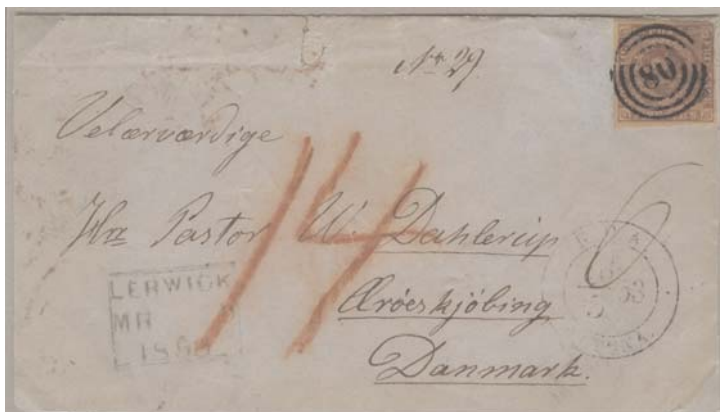 No 29.
80
Velærværdige
Hrr Pastor W. Dahlerup
Æröeskjöbing
Danmark.
14
6
LERWICK
MR
1863
63